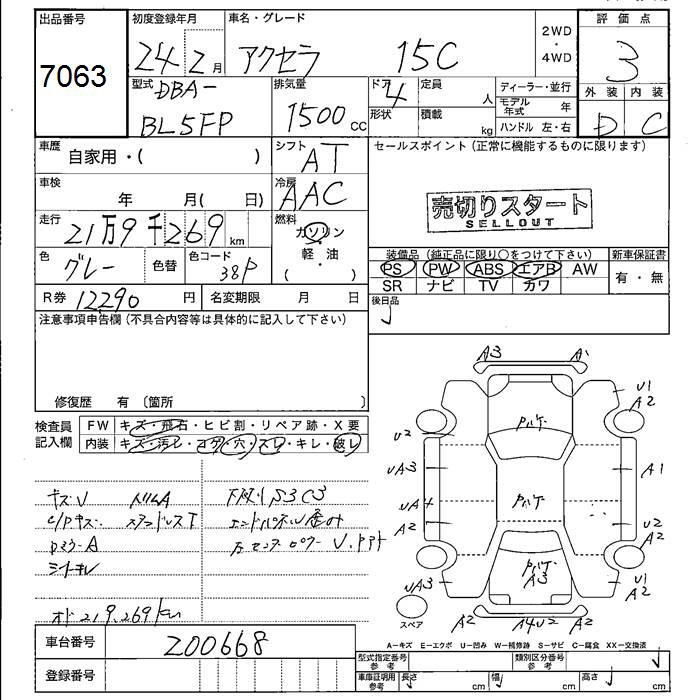 出品番号
7063
初度登録年月
24年2月
車名・グレード
アクセラ 15C
2WD
・
4WD
評価点
3
外装 内装
D C
型式
DBA-
BL5FP
排気量
1500cc
ドア 4
形状
定員 人
積載 kg
ディーラー・並行
モデル年式 年
ハンドル 左・右
車歴
自家用・( )
シフト
AT
セールスポイント(正常に機能するものに限ります)
車検
年 月( 日)
冷房
AAC
売切りスタート
SELLOUT
走行
21万9千269km
燃料
ガソリン
・
軽・油
( )
色
グレー
色替
色コード
38P
装備品(純正品に限り○をつけて下さい)
新車保証書
PS PW ABS エアB AW
有・無
SR ナビ TV カワ
R券 12290円
名変期限 月 日
後日品
注意事項申告欄(不具合内容等は具体的に記入して下さい)
修復歴 有(箇所 )
検査員
記入欄
FW キズ・飛石・ヒビ割・リペア跡・X要
内装 キズ・汚レ・コゲ・穴・スレ・キレ・破レ
キズU トリムA
下廻りS3C3
シートキレ
オド219,269km
A3 A1
U1
A2
U2
UA3
A1
UA4
A2
U2
A2
UA3
U1
A2
パハゲ
パハゲ
パハゲ
A3
スペア
A2 A4U2 A2
A-キズ E-エクボ U-凹み W-補修跡 S-サビ C-腐食 XX-交換済
車台番号
200668
登録番号
型式指定番号
参考
類別区分番号
参考
車庫証明用
参考
長さ cm
幅 cm
高さ cm